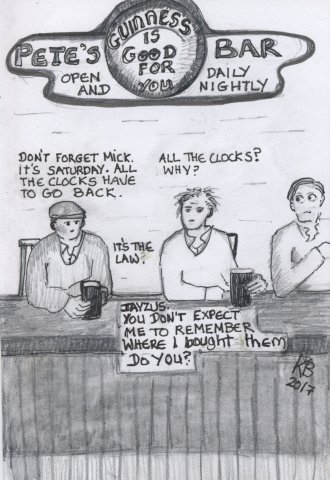 GUINNESS
IS
GOOD
FOR
YOU
PETE'S
BAR
OPEN
AND
DAILY
NIGHTLY
DON'T FORGET MICK.
IT'S SATURDAY. ALL
THE CLOCKS HAVE
TO GO BACK.
ALL THE CLOCKS?
WHY?
IT'S THE
LAW.
JAYZUS.
YOU DON'T EXPECT
ME TO REMEMBER
WHERE I bought them
DO YOU?
RB
2017